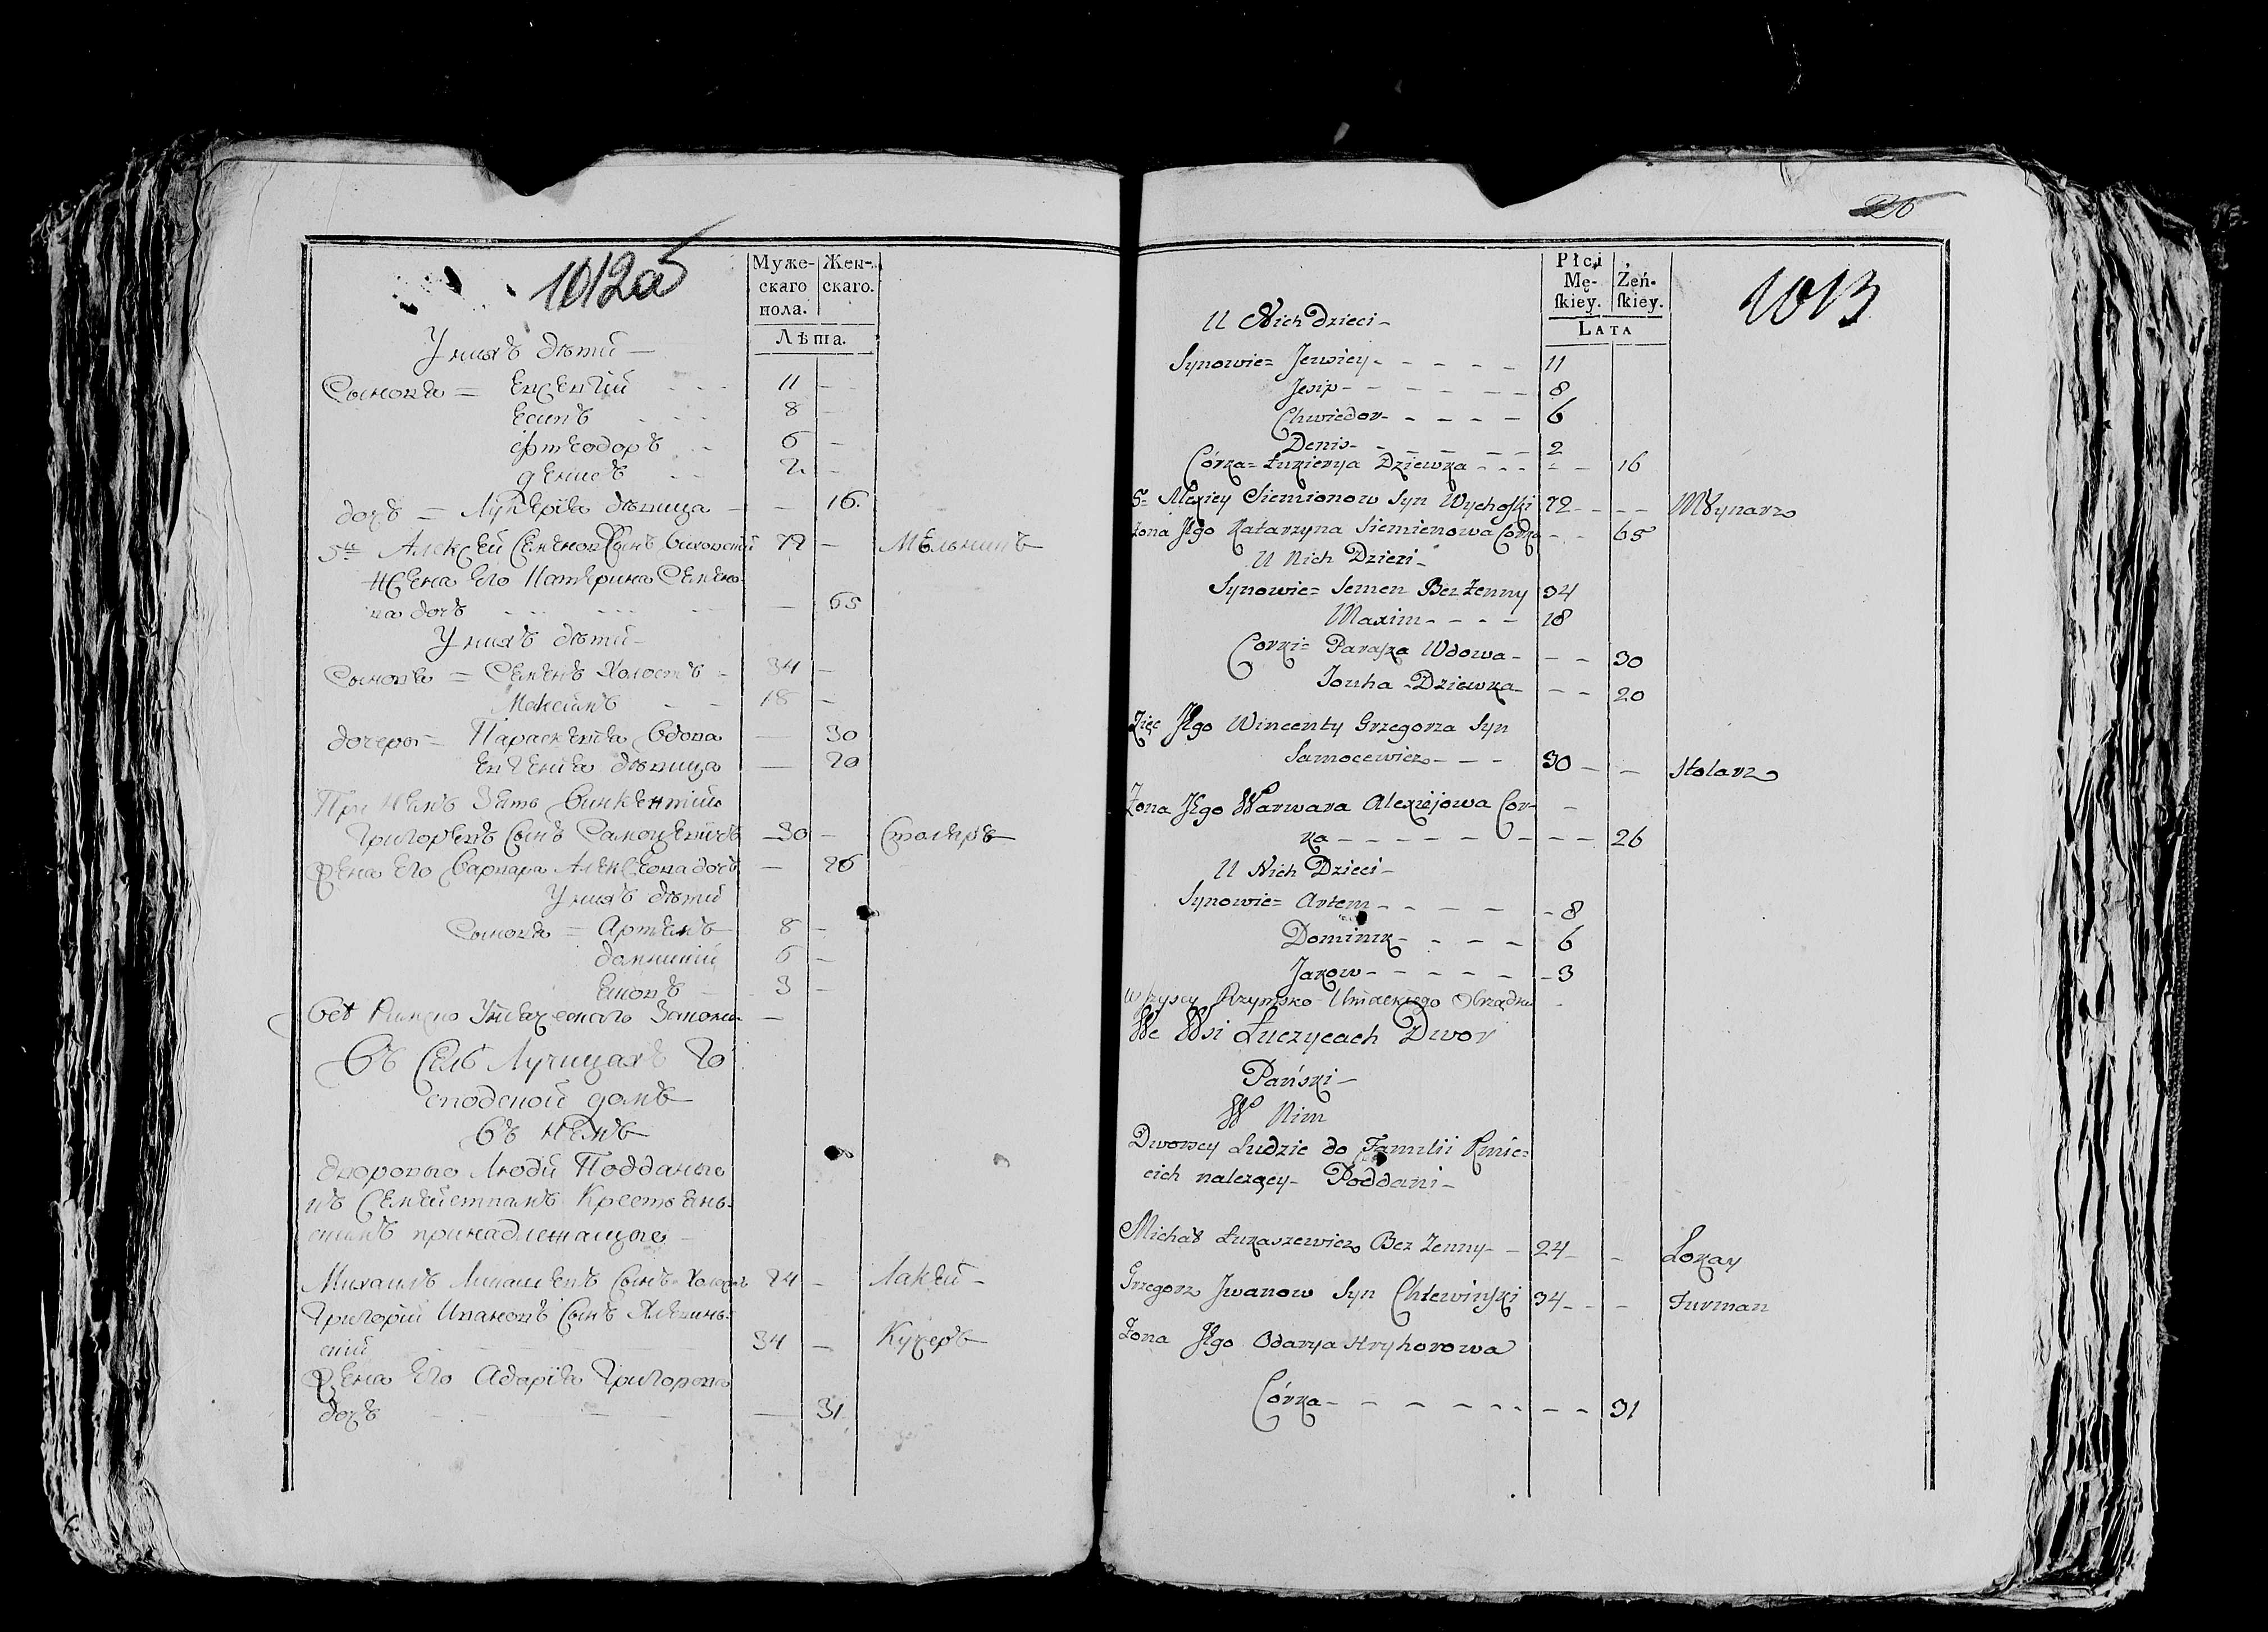 1012об
Муже-
скаго
пола.
Жен-
скаго.
Лѣта.
У нихъ дѣтй —
Сыновья = Евсевгий - - - 11 —
Есипъ - - - 8 —
Фтеодоръ - - 6 —
денисъ - - 2 —
дочъ = Лукерія дѣвица — — 16.
5й Алексей Семеновъ Сынъ Виховский 72 — Мѣльникъ
Жена Его Катерина Семено-
ва дочъ - - - — 65
У нихъ дѣтй —
Сыновья = Семенъ Холостъ - 34 —
Максимъ - - 18 —
дочеры = Параскевия Вдова — 30
Евгения дѣвица — 20
При Немъ Зять Винкентий
Григорьевъ Сынъ Самоцевичъ — 30 — Столяръ
Жена Его Варвара Алексеева дочъ — 26
У нихъ дѣтй
Сыновья = Артемъ — 8 —
доминикъ 6 —
Яковъ — 3 —
Всѣ Римско Униатскаго Закона —
Въ Селѣ Лучицахъ Го
сподской домъ
Въ Немъ
дворовые Люди Подданые
къ Семействамъ Крестьянь-
скимъ принадлежащые —
Михаилъ Лукашевъ Сынъ Холостъ 24 — Лакей —
Григорий Ивановъ Сынъ Хлѣвинь-
ский 34 — Кучеръ
Жена Его Адария Григорова
дочъ — — — — 31
26
Płci
Mę-
ſkiey.
Żeń-
ſkiey.
Lata
1013
U Nich Dzieci —
Synowie = Jewsiey - - - - - 11
Jesip - - - - - 8
Chwiedor - - - - - 6
Denis - - - - - 2
Córka = Łukierya Dziewka - - - - - 16
5- Alexiey Siemionow Syn Wychoſki 72 - - - - Młynarz
Żona Jego Katarzyna Siemienowa Corka - - 65
U Nich Dzieci —
Synowie = Semen Bez Żenny 34
Maxim - - - - 18
Corki = Paraſka Wdowa - - - 30
Jouha - Dziewka - - - 20
Zięc Jego Wincenty Grzegorza Syn
Samocewicz - - - 30 - - Stolarz
Żona Jego Warwara Alexiejowa Cor- -
ka - - - - - - - - - 26
U Nich Dzieci —
Synowie = Artem - - - - - 8
Dominik - - - - 6
Jakow - - - - - - 3
wſzyscy Rzymsko - Uniackiego Obrządku -
We Wsi Łuczycach Dwor
Pański —
W Nim
Dworscy Ludzie do Familii Kmie=
cich należący - Poddani —
Michał Łukaszewicz Bez Żenny - - 24 - - Lokay
Grzegorz Jwanow Syn Chlewinſki 34 - - - Furman
Żona Jego Odarya Hryhorowa
Córka - - - - - - - - - 31